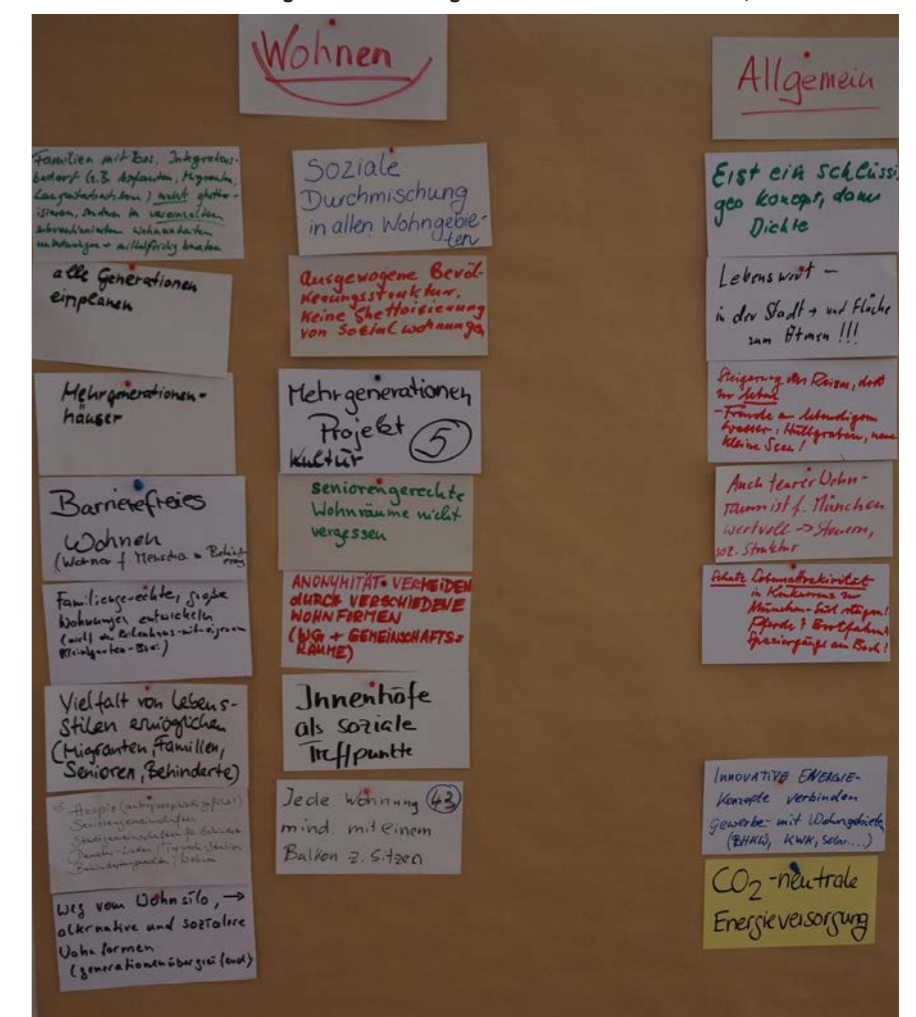 Wohnen
Familien mit bes. Integrations-
bedarf (z.B. Asylanten, Migranten,
Langzeitarbeitslose) nicht ghetto-
isieren, sondern in vereinzelten
Wohneinheiten
unterbringen + beraten
alle Generationen
einplanen
Mehrgenerationen-
häuser
Barrierefreies
Wohnen
(Wohnen f. Menschen m. Behinderung)
Familiengerechte, große
Wohnungen entwickeln
Vielfalt von Lebens-
stilen ermöglichen
(Migranten, Familien,
Senioren, Behinderte)
Hospiz
Seniorengemeinschaften
weg vom Wohnsilo, →
alternative und sozialere
Wohnformen
(generationenübergreifend)
Soziale
Durchmischung
in allen Wohngebie-
ten
Ausgewogene Bevöl-
kerungsstruktur.
Keine Ghettoisierung
von Sozialwohnungen
Mehrgenerationen
Projekt
Kultur 5
seniorengerechte
Wohnräume nicht
vergessen
ANONYMITÄT VERMEIDEN
DURCH VERSCHIEDENE
WOHNFORMEN
(WG + GEMEINSCHAFTS=
RÄUME)
Innenhöfe
als soziale
Treffpunkte
Jede Wohnung 43
mind. mit einem
Balkon z. Sitzen
Allgemein
Erst ein schlüssi
ges Konzept, dann
Dichte
Lebenswert -
in der Stadt → und Fläche
zum Atmen !!!
Steigerung des Reizes, dort
zu leben
- Freude an lebendigem
Wasser: Hüllgraben, neue
kleine Seen!
Auch teurer Wohn-
raum ist f. München
wertvoll → Steuern,
soz. Struktur
in Konkurrenz zu
München-Süd
Pferde? Bootfahren?
Spaziergänge am Bach!
INNOVATIVE ENERGIE-
Konzepte verbinden
Gewerbe- mit Wohngebieten
(BHKW, KWK, Solar....)
CO2-neutrale
Energieversorgung